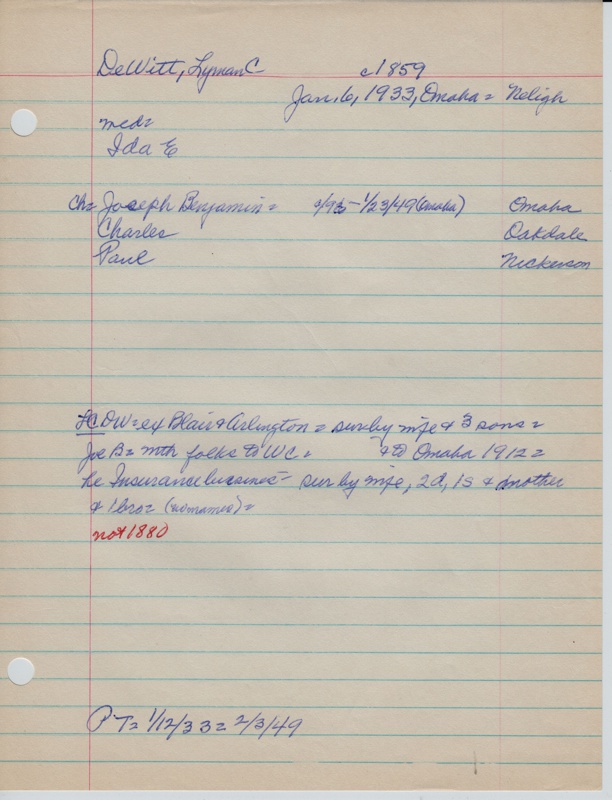 DeWitt, Lyman C c1859
Jan. 6, 1933, Omaha = Neligh
med=
Ida E
Ch= Joseph Benjamin = c/95 - 1/23/49 (Omaha) Omaha
Charles Oakdale
Paul Nickerson
LC DW = ex Blair & Arlington = sur by wife & 3 sons =
Joe B = with folks to WC = & to Omaha 1912 =
he Insurance business = sur by wife, 2d, 1s & mother
& 1 bro = (no names) =
not 1880
PT= 1/12/33 = 2/3/49